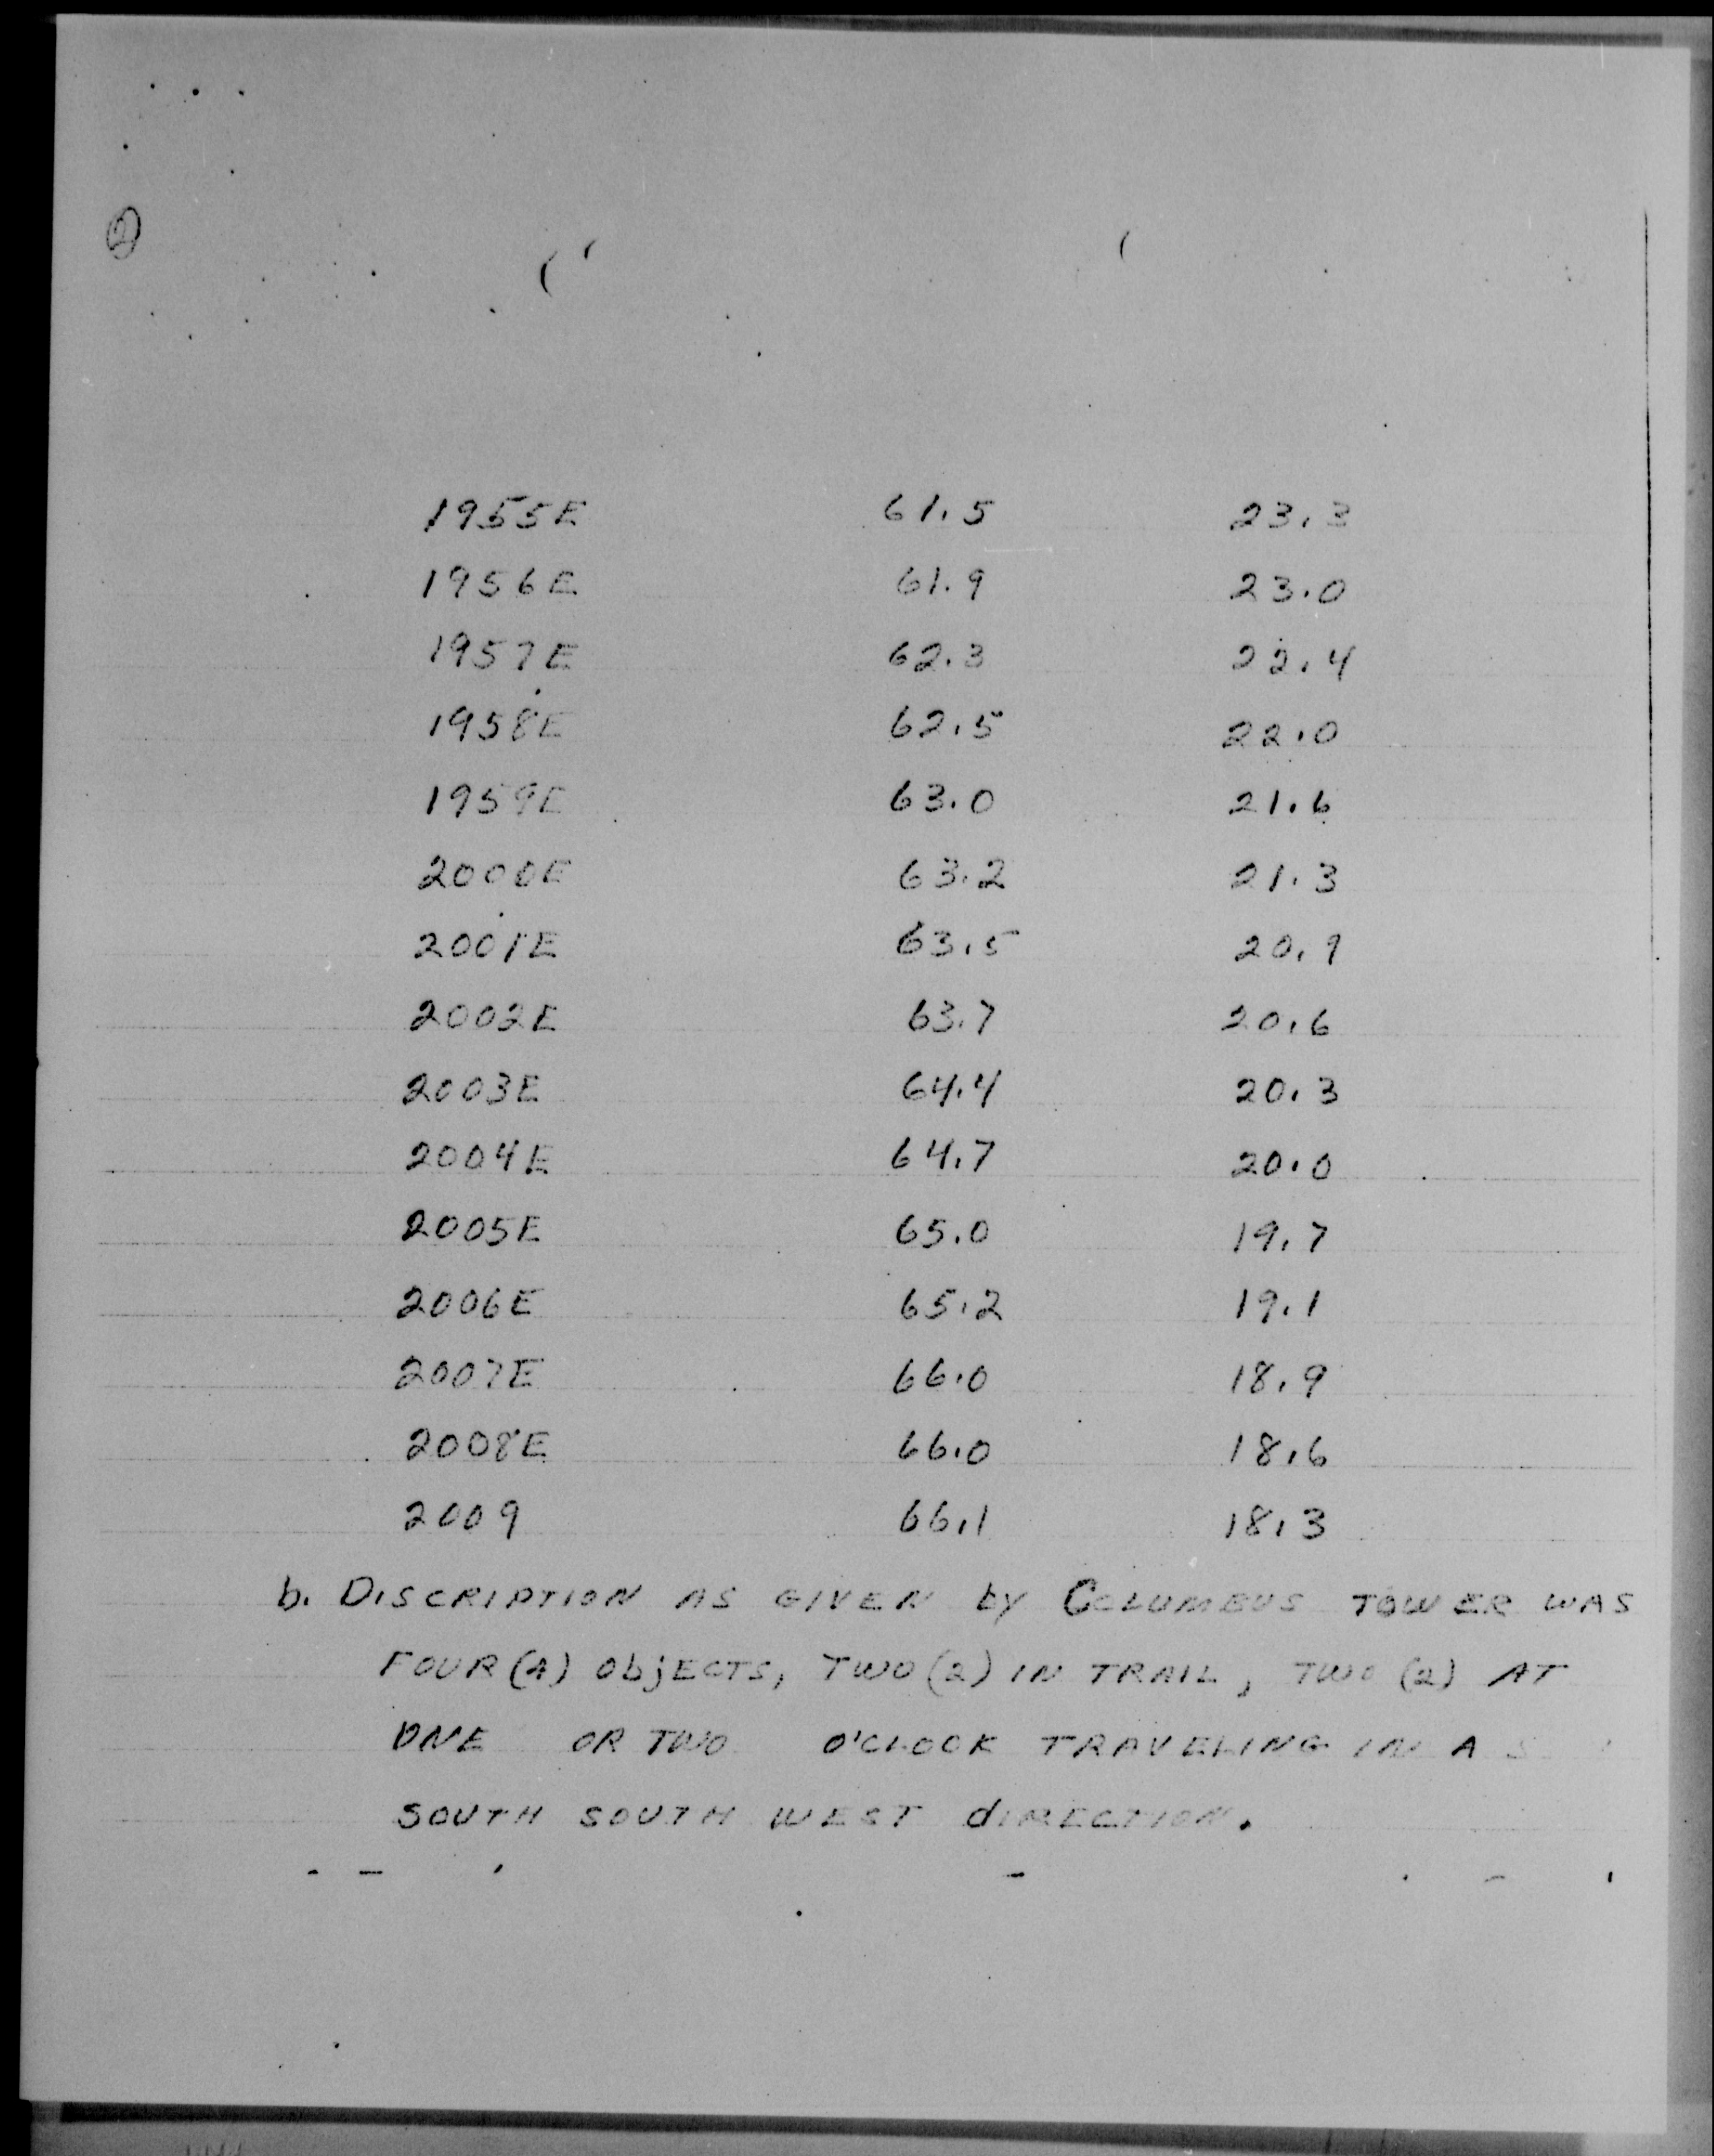 2
1955E 61.5 23.3
1956E 61.9 23.0
1957E 62.3 22.4
1958E 62.5 22.0
1959E 63.0 21.6
2000E 63.2 21.3
2001E 63.5 20.9
2002E 63.7 20.6
2003E 64.4 20.3
2004E 64.7 20.0
2005E 65.0 19.7
2006E 65.2 19.1
2007E 66.0 18.9
2008E 66.0 18.6
2009 66.1 18.3
b. DISCRIPTION AS GIVEN by COLUMBUS TOWER WAS
FOUR (4) ObjECTS, TWO (2) IN TRAIL, TWO (2) AT
ONE OR TWO O'CLOCK TRAVELING IN A S
SOUTH SOUTH WEST dIRECTION.